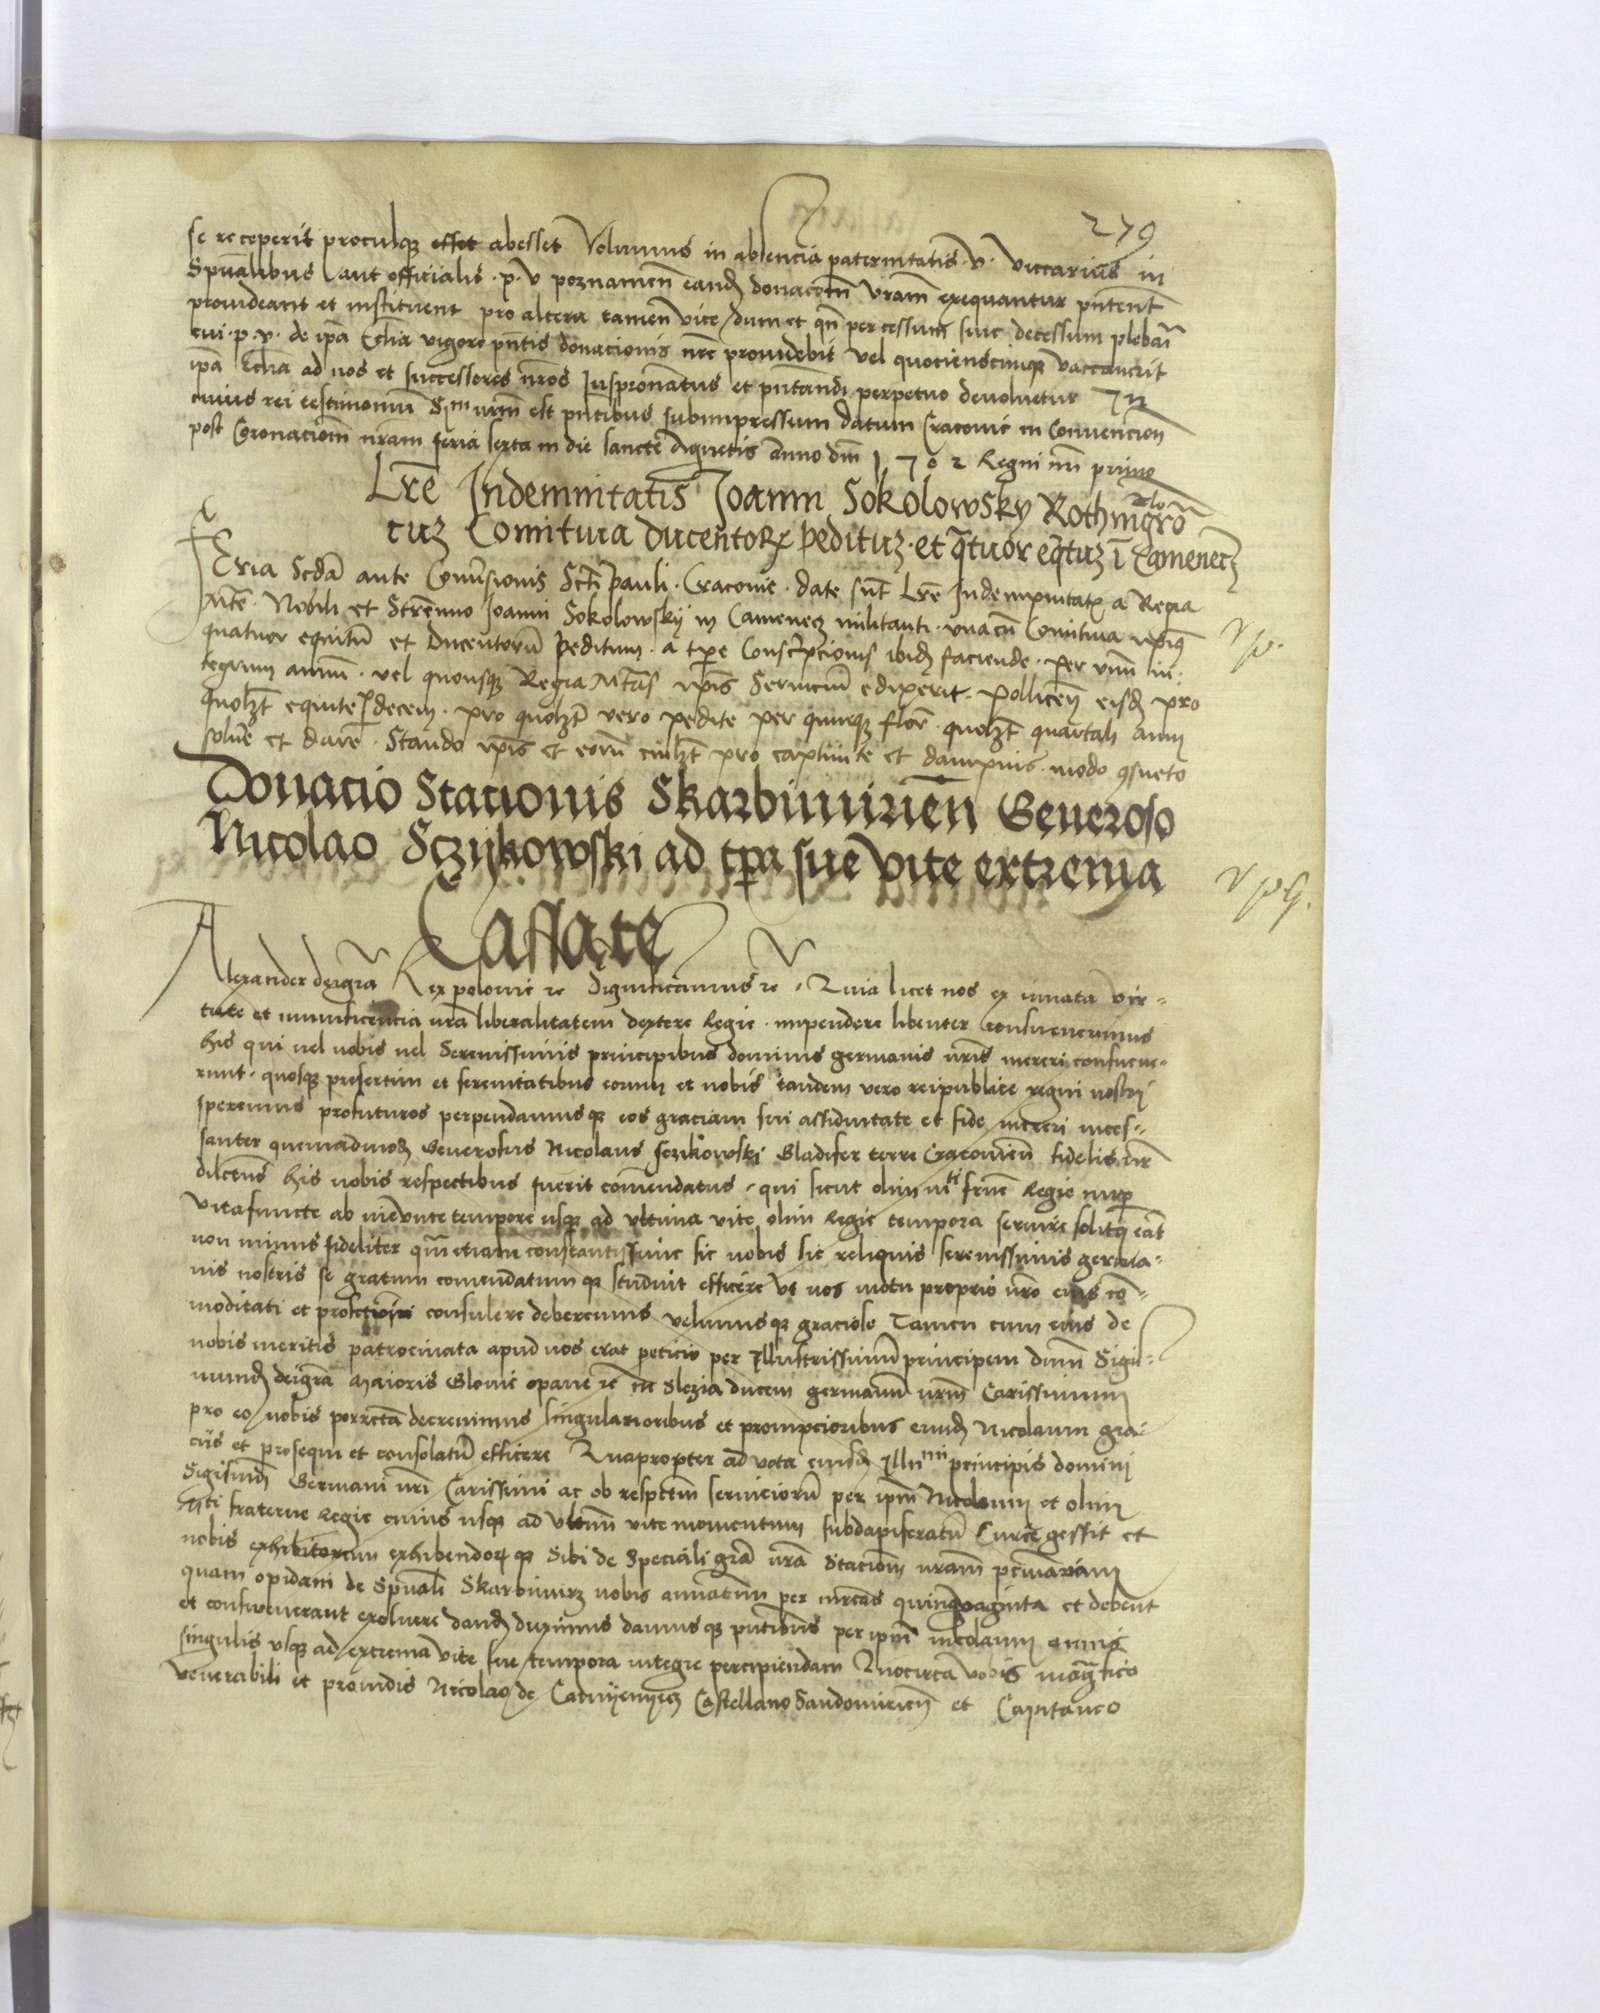 279
se receperit proculq esset abesset Volumus in absencia paternitatis v. viccarius in
Spualibus aut officialis p. v poznamen eand donacom vram exequantur pntent
prouideant et instituent pro altera tamen vice dum et qn per cessum siue decessum plebani
cui p. v. de ipa Ecclia vigore pntis donacionis nre prouidebit vel quocienscunq vaccauerit
ipa Ecclia ad nos et successores nros Iuspronatus et pntandi perpetuo deuoluetur In
cuius rei testimonium S^m nrm est pntibus subimpressum datum Cracouie in Conuencion
post Coronaciom nram feria sexta in die sancte Agnetis anno dm 1502 Regni nri primo
Lre Indemnitatis Joanni Sokolowsky Rothmgro
cuz Comitiua ducentorx pedituz. et qtuor eqtuz i Camenecz
FEria Scda ante Conusionis Scti Pauli. Cracouie. date sut Lre Indempnitatx a Regia
Mte. Nobili et Strennuo Joanni Sokolowskij in Camenecz militanti. vnacu Comitiua ipiq
quatuor equitu et Ducentoru peditum. a tpe Conscripcionis ibid faciende. per vnu in-
tegrum annu. vel quousq Regia Mtas ipis Seruiciu edixerit. pollicen eisd pro
quolzt equite decem. pro quolzt vero pedite per quinq flor. quolzt quartali anni
solue et dare. Stando ipis et eoru cuilzt pro captiuite et dampnis. modo 9sueto
Donacio Stacionis Skarbimirien Generoso
Nicolao Sczijkowski ad tpa sue vite extrema
Cassate
Alexander dei gra Rex polonie re Significamus re. Quia licet nos ex innata vir-
tute et munificencia nra liberalitatem dextere Regie. impendere libenter consueuerimus
his qui uel nobis uel Serenissimis principibus dominis germanis nris mereri consueue-
runt. quosq presertim et serenitatibus eorum et nobis tandem vero reipublice regni nostri
speremus profuturos perpendamusq eos graciam sui assiduitate et fide mereri inces-
santer quemadmod Generosus Nicolaus sczikowski Gladifer terre Cracouien fidelis nr
dilectus his nobis respectibus fuerit comendatus. qui sicut olim m^ti frne Regie nup
vita functe ab ineunte tempore usq ad vltima vite olim Regie tempora seruire solitq erat
non minus fideliter qm etiam constantissime sic nobis sic reliquis serenissimis germa-
nis nostris se gratum comendatumq studuit efficere vt nos motu proprio nro eius co-
moditati et profectioni consulere deberemus velimusq graciose Tamen cum eius de
nobis meritis patrocinata apud nos erat peticio per Illustrissimu principem dnm Sigis-
mund dei gra Maioris Glouie opauie re in Slezia ducem germanu nrm Carissimum
pro eo nobis porrecta decreuimus singularioribus et prompcioribus eund Nicolaum gra-
ciis et prosequi et consolatu efficere Quapropter ad vota eiusd Illu^mi principis domini
Sigismd Germani nri Carissimi ac ob respctum seruicioru per ipm Nicolaum et olim
M^ti fraterne Regie cuius usq ad vltimu vite momentum subdapiferatu Curie gessit et
nobis exhibitorum exhibendorq Sibi de Speciali gra nra Staciom nram pcuniariam
quam opidani de Spuali Skarbimirz nobis annatim per mrcas quinquaginta et debent
et consweuerant exoluere dand duximus damusq pntibus per ipm nicolaum annis
singulis vsq ad extrema vite sue tempora integre percipiendam Quocirca vobis magfico
venerabili et prouidis Nicolao de Camijenijecz Castellano Sandomirien et Capitaneo